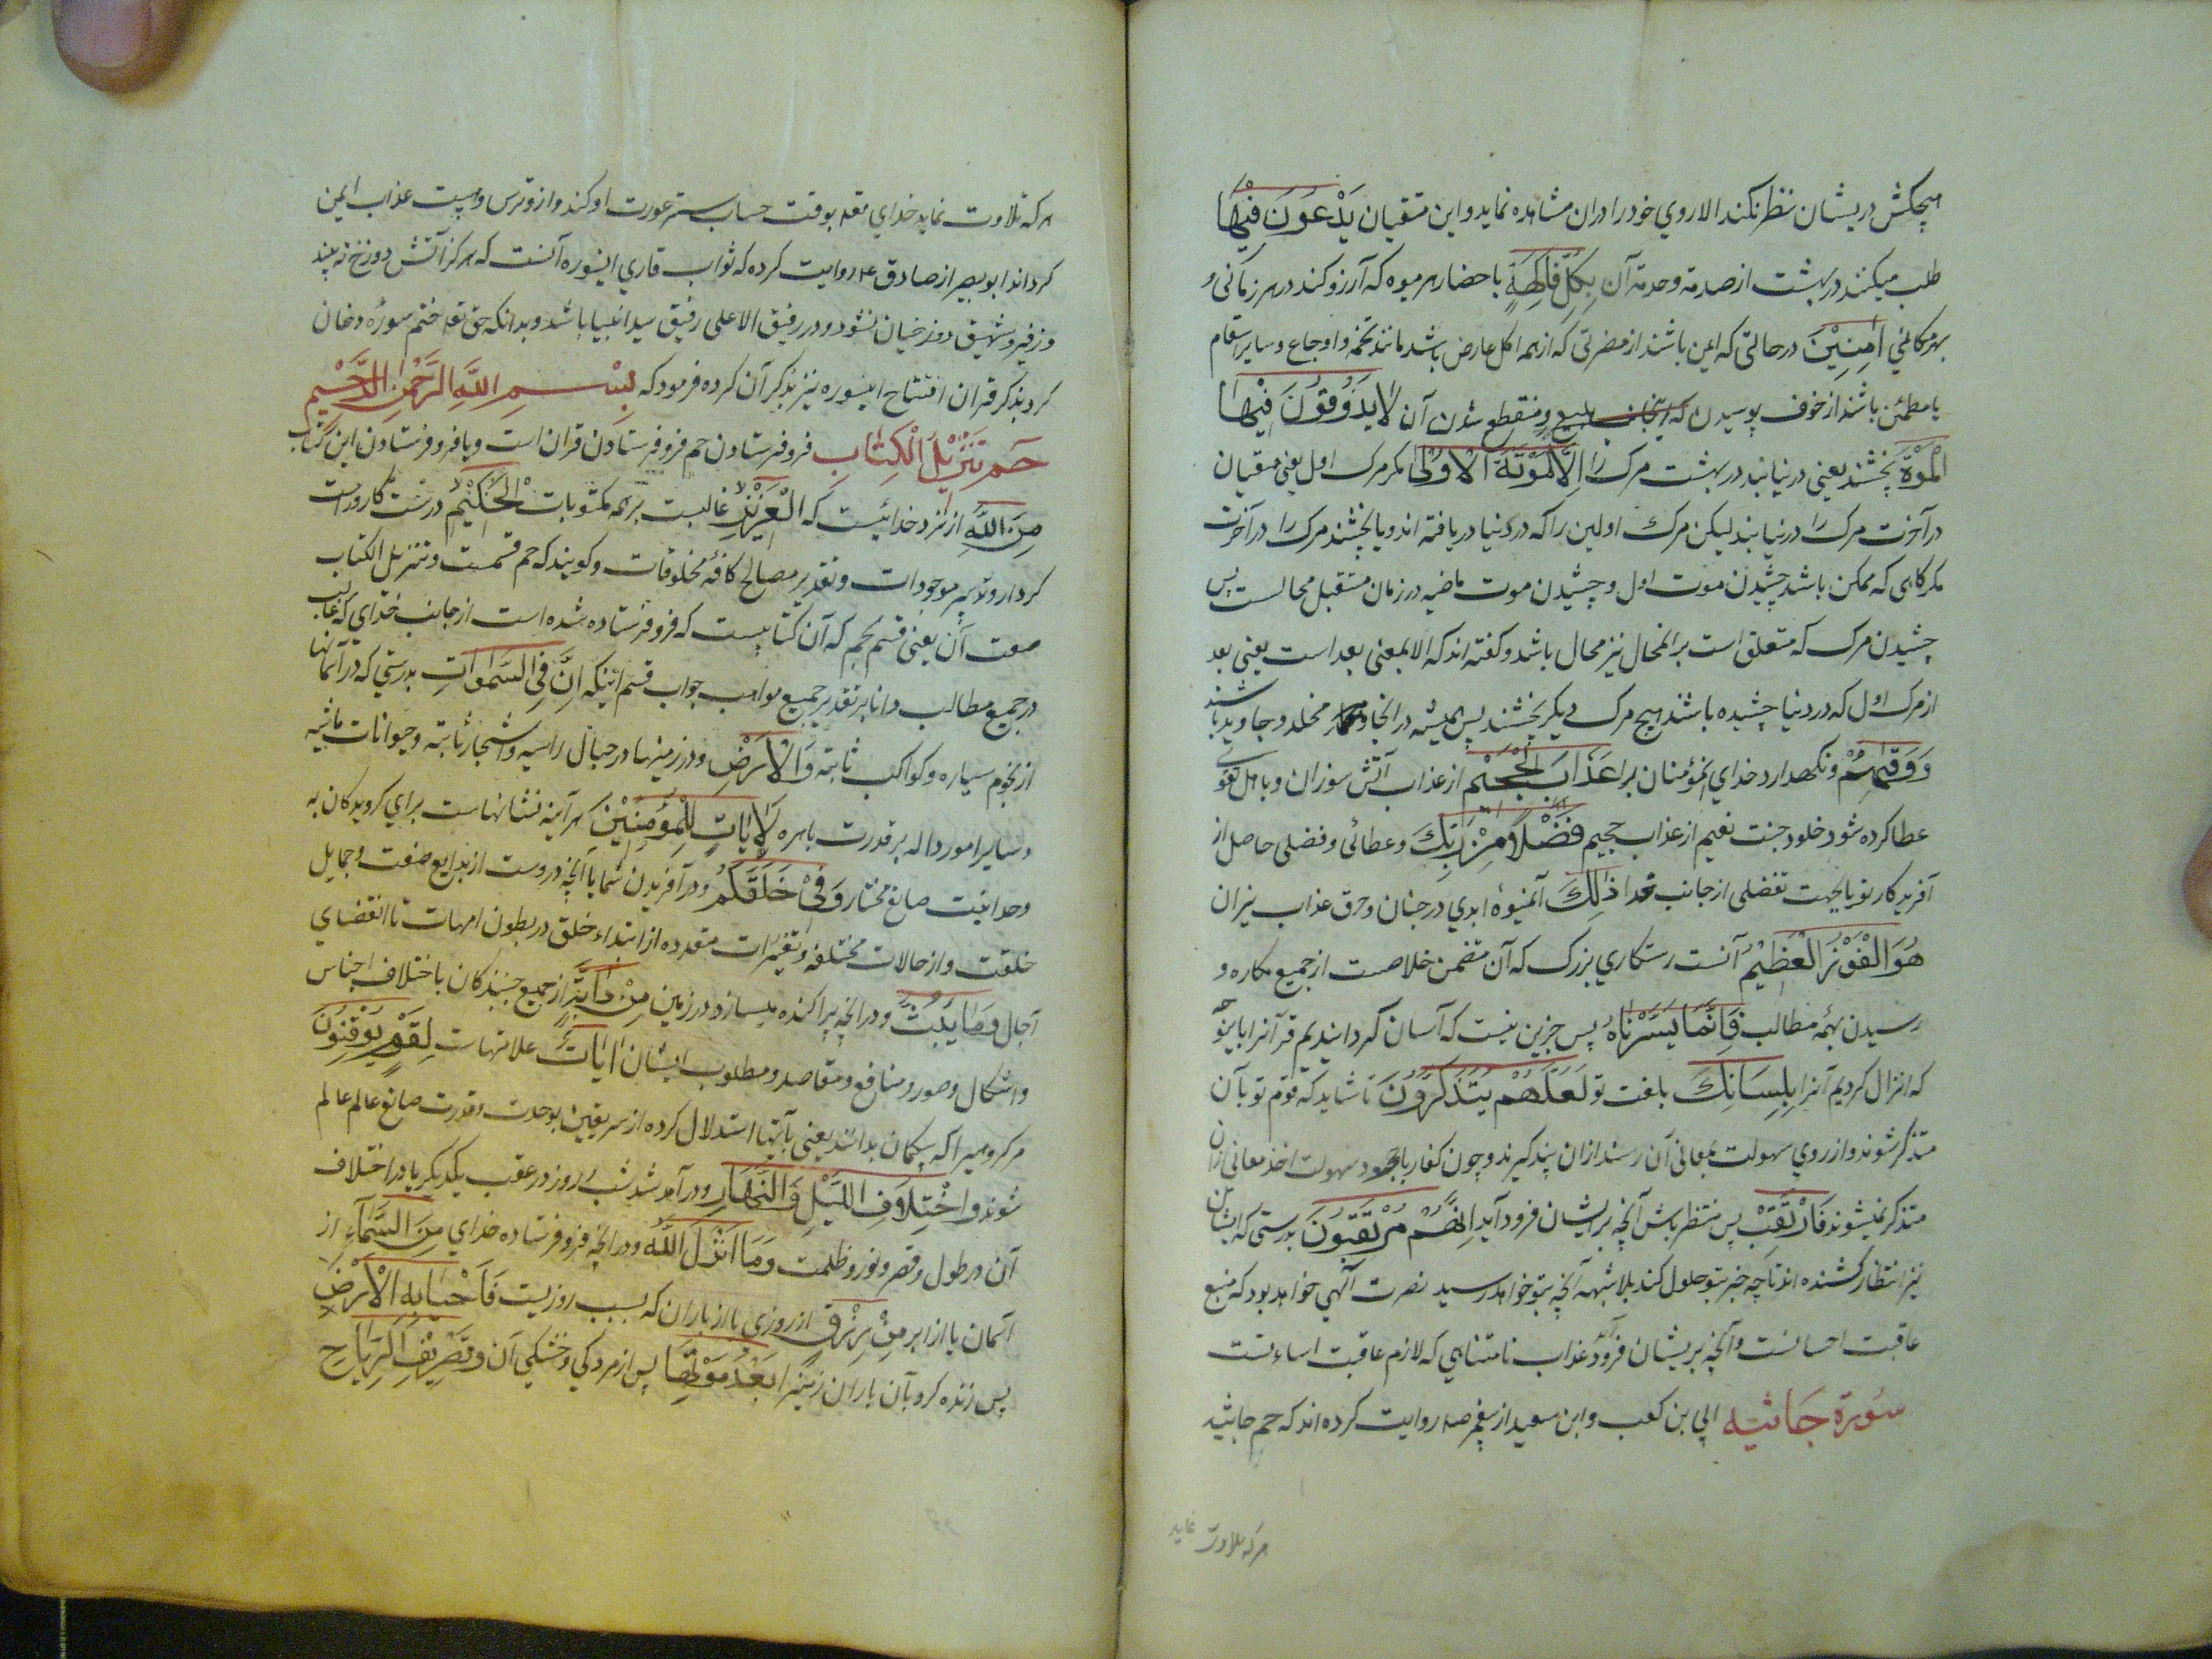 هیچکس دریشان نظر نکند الا روی خود را دران مشاهده نماید و این متقیان یَدْعُونَ فِیْهَا
طلب میکنند در بهشت از صدمه و حدمه آن بِكُلِّ فَاكِهَةٍ باحضار هر میوه که آرزو کند در هر زمانی و
بهر مکانی اٰمِنِیْنَ در حالتی که ایمن باشند از مضرتی که از همه اکل عارض باشد مانند تخمه و اوجاع و سایر اسقام
یا مطمئن باشند از خوف پوسیدن و منقطع شدن آن لَا یَذُوقُونَ فِیْهَا
الْمَوْتَ نچشند یعنی درنیابند در بهشت مرگ را اِلَّا الْمَوْتَةَ الْاُوْلٰی مکر مرک اول یعنی متقیان
در آخرت مرک را درنیابند لیکن مرک اولین را که در دنیا دریافته اند و یا نچشند مرک را در آخرت
مکر کاهی که ممکن باشد چشیدن موت اول و چشیدن موت ماضیه در زمان مستقبل محالست پس
چشیدن مرک که متعلق است بر انمحال نیز محال باشد و کفته اند که الا بمعنی بعد است یعنی بعد
از مرک اول که در دنیا چشیده باشند هیچ مرک دیکر نچشند پس همیشه در انجا مخلد و جاوید باشند
وَوَقٰیهُمْ و نکهدارد خدای انمؤمنان را عَذَابَ الْجَحِیْمِ از عذاب آتش سوزان و باهل تقوی
عطا کرده شود خلود جنت نعیم از عذاب جحیم فَضْلًا مِنْ رَبِّكَ و عطائی و فضلی حاصل از
آفریدکار تو یا بجهت تفضلی از جانب خدا ذٰلِكَ آنمنیوه ابدی در جنان و حرق عذاب نیران
هُوَ الْفَوْزُ الْعَظِیْمُ آنست رستکاری بزرک که آن متضمن خلاصست از جمیع مکاره و
رسیدن بهمه مطالب فَاِنَّمَا یَسَّرْنَاهُ پس جزین نیست که آسان کردانیدیم قرآنرا باینوجه
که انزال کردیم آنرا بِلِسَانِكَ بلغت تو لَعَلَّهُمْ یَتَذَكَّرُونَ تا شاید که قوم تو بآن
متذکر شوند و از روی سهولت بمعانی آن رسند ازان پند کیرند و چون کفار با وجود سهولت اخذ معانی ازان
متذکر نمیشوند فَارْتَقِبْ پس منتظر باش آنچه بر ایشان فرود آید اِنَّهُمْ مُرْتَقِبُونَ بدرستی که ایشان
نیز انتظار کشنده اند تا چه خبر بتو حلول کند بلا شبهه آنچه بتو خواهد رسید نصرت الهی خواهد بود که منبع
عاقبت احسانست و آنچه بریشان فرود آید عذاب نامتناهی که لازم عاقبت اساءتست
سورة جاثیه ابی بن کعب و ابن سعید از پیغمبر صلعم روایت کرده اند که حم جاثیه
هرکه تلاوت نماید
هرکه تلاوت نماید خدای تعه بوقت حساب ستر عورت او کند و از و ترس و هیبت عذاب ایمن
کرداند ابو بصیر از صادق ع روایت کرده که ثواب قاری اینسوره آنست که هرکز آتش دوزخ نه بیند
و زفیر و شهیق دوزخیان نشنود و در رفیق الاعلی رفیق سید انبیا باشد و بدانکه حق تعه ختم سوره دخان
کرد بذکر قران افتتاح اینسوره نیز بذکر آن کرده فرمود که بِسْمِ اللّٰهِ الرَّحْمٰنِ الرَّحِیْمِ
حٰم تَنْزِیْلُ الْكِتَابِ فرو فرستادن حم فرو فرستادن قران است و یا فرو فرستادن این کتاب
مِنَ اللّٰهِ از نزد خدائیست که الْعَزِیْزِ غالبست بر همه مکتوبات الْحَكِیْمِ درست کار و راست
کردار و تدبیر موجودات و تقدیر مصالح کافه مخلوقات و کویند که حم قسمست و تنزیل الکتاب
صفت آن یعنی قسم بحم که آن کتابیست که فرو فرستاده شده است از جانب خدای که غالب
در جمیع مطالب دانا بر تقدیر جمیع مواهب جواب قسم اینکه اِنَّ فِی السَّمٰوَاتِ بدرستی که در آسمانها
از نجوم سیاره و کواکب ثابته وَالْاَرْضِ و در زمینها در جبال راسیه و اشجار ثابته و حیوانات ماشیه
و سایر امور داله بر قدرت باهره لَاٰیَاتٍ لِلْمُؤْمِنِیْنَ هر آینه نشانهاست برای کرویدکان به
وحدانیت صانع مختار وَفِیْ خَلْقِكُمْ و در آفریدن شما یا آنچه دروست از بدایع صنعت و جمایل
خلقت و از حالات مختلفه و تغیرات متعدده از ابتداء خلق در بطون امهات تا انقضای
آجال وَمَا یَبُثُّ و در انچه پراکنده میسازد در زمین مِنْ دَابَّةٍ از جمیع جنبندکان باختلاف اجناس
و اشکال و صور و منافع و مقاصد و مطلوب ایشان اٰیَاتٌ علامتهاست لِقَوْمٍ یُوْقِنُوْنَ
مر کروهیرا که بیکمان بدانند یعنی بآنها استدلال کرده از سر یقین بوحدت و قدرت صانع عالم عالم
شوند وَاخْتِلَافِ اللَّیْلِ وَالنَّهَارِ و در آمد شد شب و روز در عقب یکدیکر یا در اختلاف
آن در طول و قصر و نور و ظلمت وَمَا اَنْزَلَ اللّٰهُ و در انچه فرو فرستاده خدای مِنَ السَّمَاءِ از
آسمان یا از ابر مِنْ رِزْقٍ از روزی یا از باران که بسبب روزیست فَاَحْیَا بِهِ الْاَرْضَ
پس زنده کرد بآن باران زمینرا بَعْدَ مَوْتِهَا پس از مردکی و خشکی آن وَتَصْرِیْفِ الرِّیَاحِ